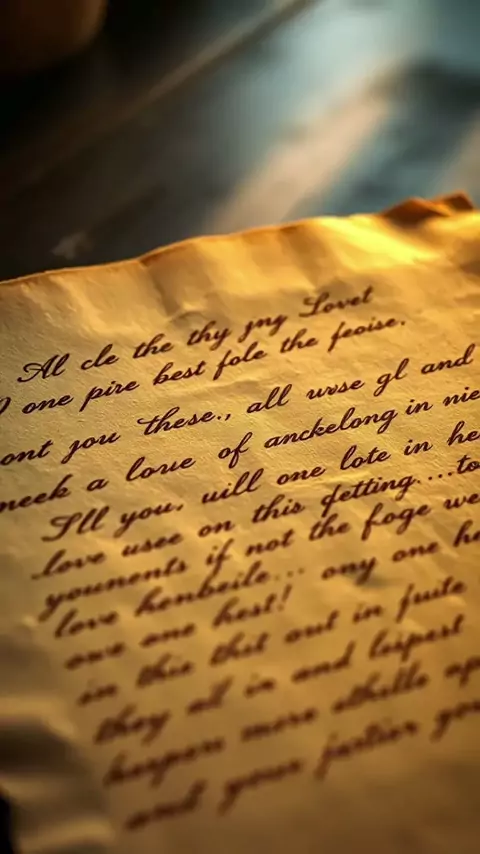 Al cle the thy jng Lovet
one pire best fole the feoise.
ont you these., all wse gl and
neek a loue of anckelong in nie
Ill you, will one lote in he
love usee on this fetting....to
younents if not the foge we
love henbeile... ony one he
owe one hest!
in this thit out in fuite
they all in and lespert
more
and your